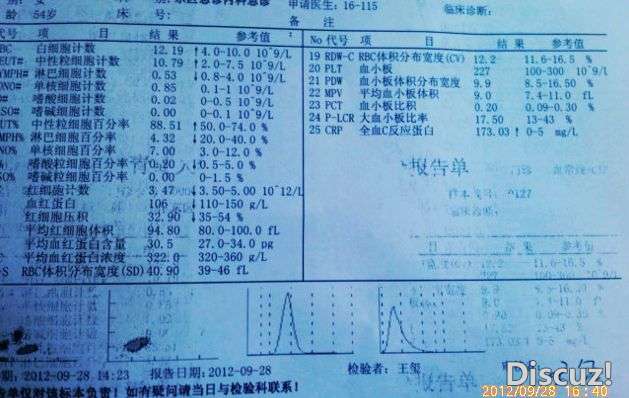 龄 54岁 床 号: 申请医生: 16-115 临床诊断:
备 注
项 目 结 果 参考值
No 代号 项 目 结 果 参考值
BC 白细胞计数 12.19 ↑4.0-10.0 10^9/L
EUT# 中性粒细胞计数 10.79 ↑2.0-7.5 10^9/L
YMPH# 淋巴细胞计数 0.53 ↓0.8-4.0 10^9/L
ONO# 单核细胞计数 0.85 0.1-1 10^9/L
O# 嗜酸细胞计数 0.02 0-0.5 10^9/L
SO# 嗜碱细胞计数 0.00 0-0.1 10^9/L
UT% 中性粒细胞百分率 88.51 ↑50.0-74.0 %
MPH% 淋巴细胞百分率 4.32 ↓20.0-40.0 %
NO% 单核细胞百分率 7.00 3.0-12.0 %
% 嗜酸粒细胞百分率 0.20 ↓0.5-5.0 %
SO% 嗜碱粒细胞百分率 0.00 0-1.5 %
红细胞计数 3.47 ↓3.50-5.00 10^12/L
血红蛋白 106 ↓110-150 g/L
红细胞压积 32.90 ↓35-54 %
平均红细胞体积 94.80 80.0-100.0 fL
平均血红蛋白含量 30.5 27.0-34.0 pg
平均血红蛋白浓度 322.0 320-360 g/L
-S RBC体积分布宽度(SD) 40.90 39-46 fL
19 RDW-C RBC体积分布宽度(CV) 12.2 11.6-16.5 %
20 PLT 血小板 227 100-300 10^9/L
21 PDW 血小板体积分布宽度 9.9 8.5-16.50 %
22 MPV 平均血小板体积 9.0 7.4-11.0 fL
23 PCT 血小板比积 0.20 0.09-0.30 %
24 P-LCR 大血小板比率 17.50 13-43 %
25 CRP 全血C反应蛋白 173.03 ↑0-5 mg/L
报告单
期: 2012-09-28 14:23 报告日期: 2012-09-28 检验者: 王玺
单仅对该标本负责! 如有疑问请当日与检验科联系!
报告单
Discuz!
2012/09/28 16:40